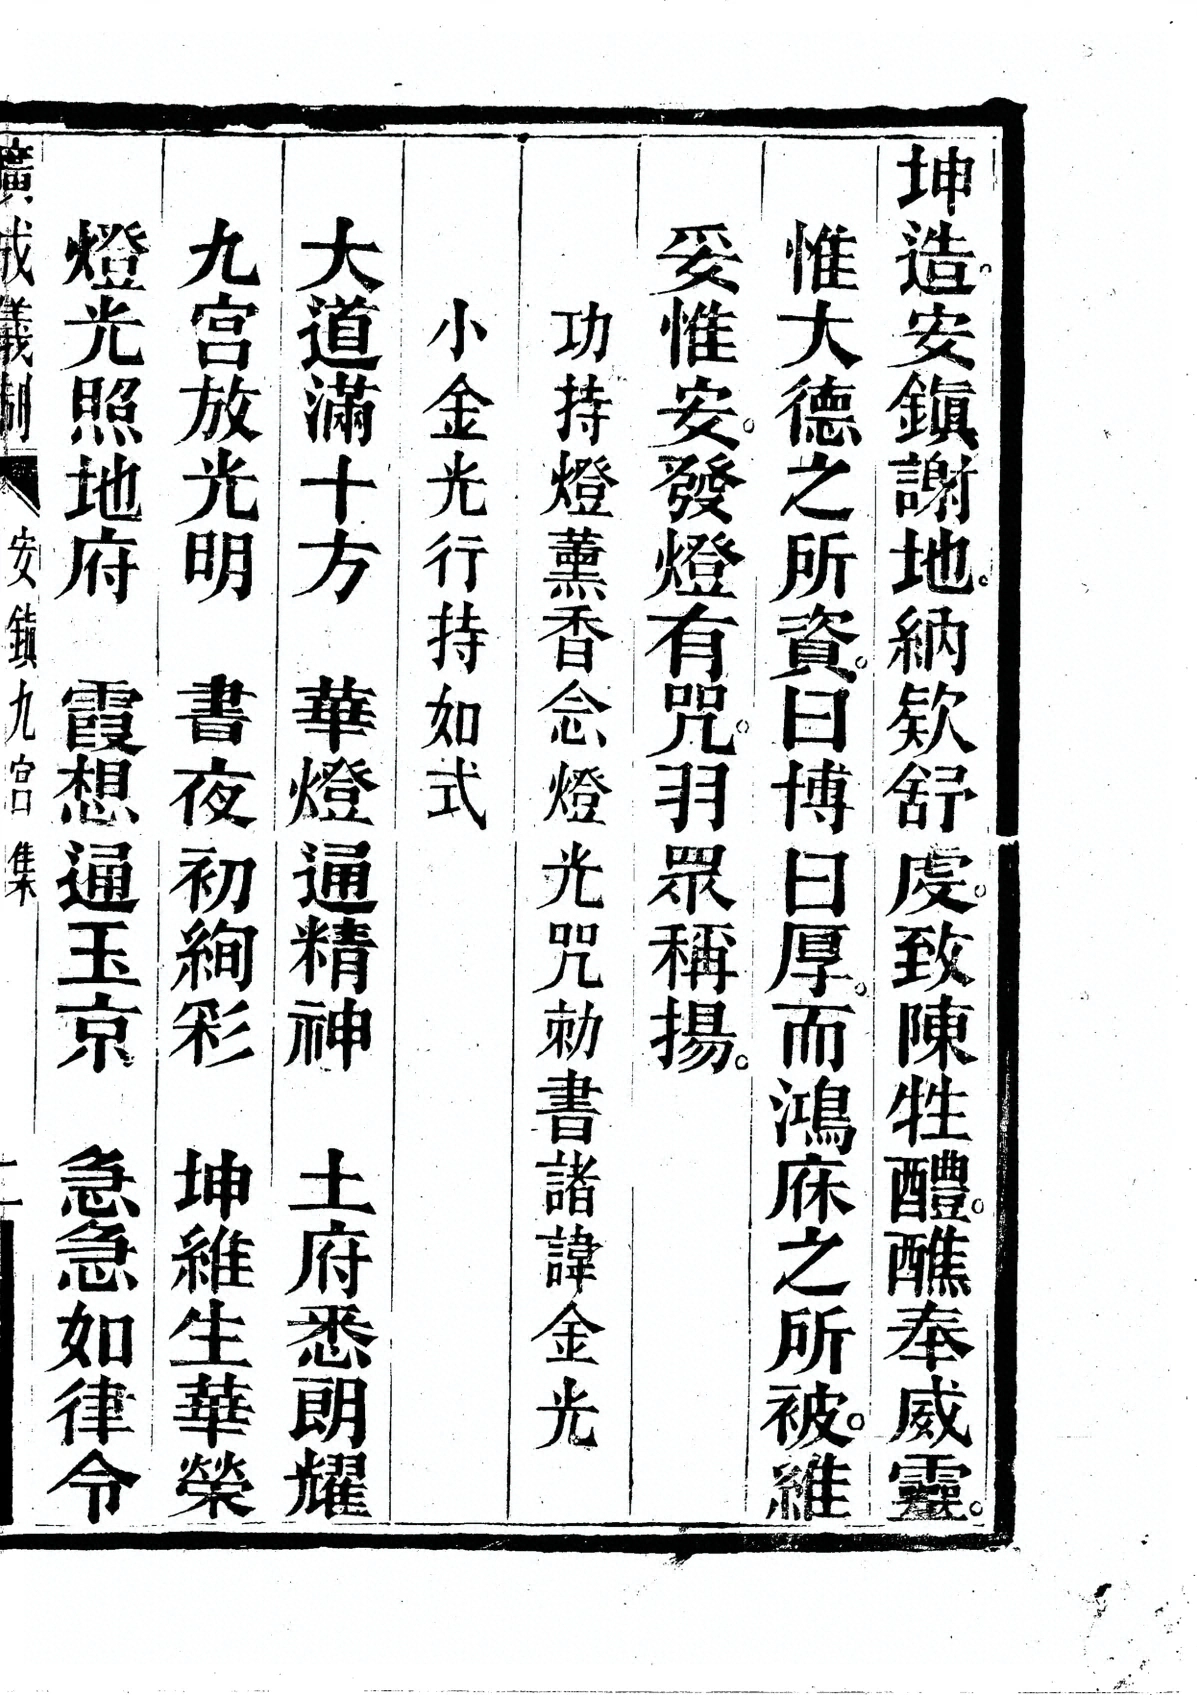 坤造。安鎮謝地。納欵舒虔。致陳牲醴。醮奉威靈。
惟大德之所資。曰博曰厚。而鴻庥之所被。維
妥惟安。發燈有咒。羽眾稱揚。
功持燈薰香念燈光咒勅書諸諱金光
小金光行持如式
大道滿十方　華燈通精神　土府悉朗耀
九宮放光明　書夜初絢彩　坤維生華榮
燈光照地府　霞想通玉京　急急如律令
廣成儀制　安鎮九宮集